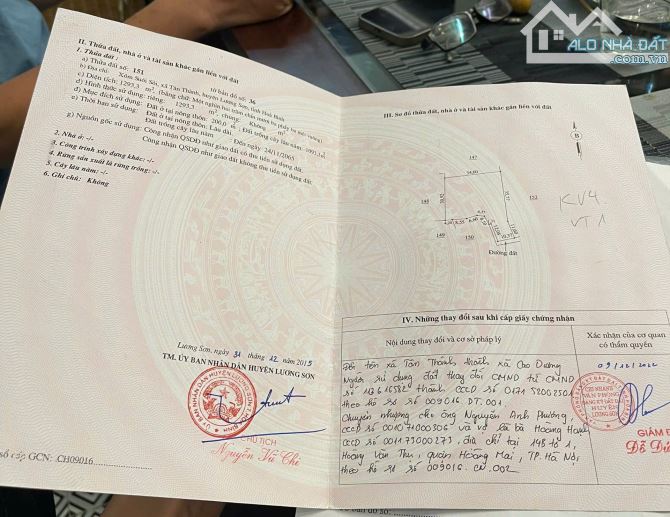 ALO NHÀ ĐẤT
.com.vn
II. Thửa đất, nhà ở và tài sản khác gắn liền với đất
1. Thửa đất:
a) Thửa đất số: 151 Tờ bản đồ số: 36
b) Địa chỉ: Xóm Suối Sỏi, xã Tân Thành, huyện Lương Sơn, tỉnh Hoà Bình
c) Diện tích: 1293,3 m², (bằng chữ: Một nghìn hai trăm chín mươi ba phẩy ba mét vuông)
d) Hình thức sử dụng: riêng: 1293,3 m²; chung: Không m²
đ) Mục đích sử dụng: Đất ở tại nông thôn: 200,0 Đất trồng cây lâu năm: 1093,3
e) Thời hạn sử dụng: Đất ở tại nông thôn: Lâu dài.
Đất trồng cây lâu năm Đến ngày 24/11/2065
g) Nguồn gốc sử dụng: Công nhận QSDĐ như giao đất có thu tiền sử dụng đất.
Công nhận QSDĐ như giao đất không thu tiền sử dụng đất.
2. Nhà ở: -/-
3. Công trình xây dựng khác: -/-
4. Rừng sản xuất là rừng trồng: -/-
5. Cây lâu năm: -/-
6. Ghi chú: Không
Lương Sơn, ngày 31 tháng 12 năm 2015
TM. ỦY BAN NHÂN DÂN HUYỆN LƯƠNG SƠN
CHỦ TỊCH
Nguyễn Vũ Chi
Số vào sổ cấp GCN: CH09016
III. Sơ đồ thửa đất, nhà ở và tài sản khác gắn liền với đất
B
147
34,60
148
152
149
150
Đường đất
KV4
VT1
IV. Những thay đổi sau khi cấp giấy chứng nhận
Nội dung thay đổi và cơ sở pháp lý
Xác nhận của cơ quan có thẩm quyền
Đổi tên xã Tân Thành thành xã Cao Dương
Người sử dụng đất thay đổi CMND từ CMND
số 113616582 thành CCCD số 017152002501
theo hồ sơ số 009016.DT.001
Chuyển nhượng cho ông Nguyễn Anh Phương,
CCCD số 001071000306 và vợ là bà Hoàng Hạnh
CCCD 001173000273, địa chỉ tại 14B tổ 1,
Hoàng Văn Thụ, quận Hoàng Mai, TP. Hà Nội,
theo hồ sơ số 009016.CN.002
09/12/2022
GIÁM Đ
Đỗ Đứ